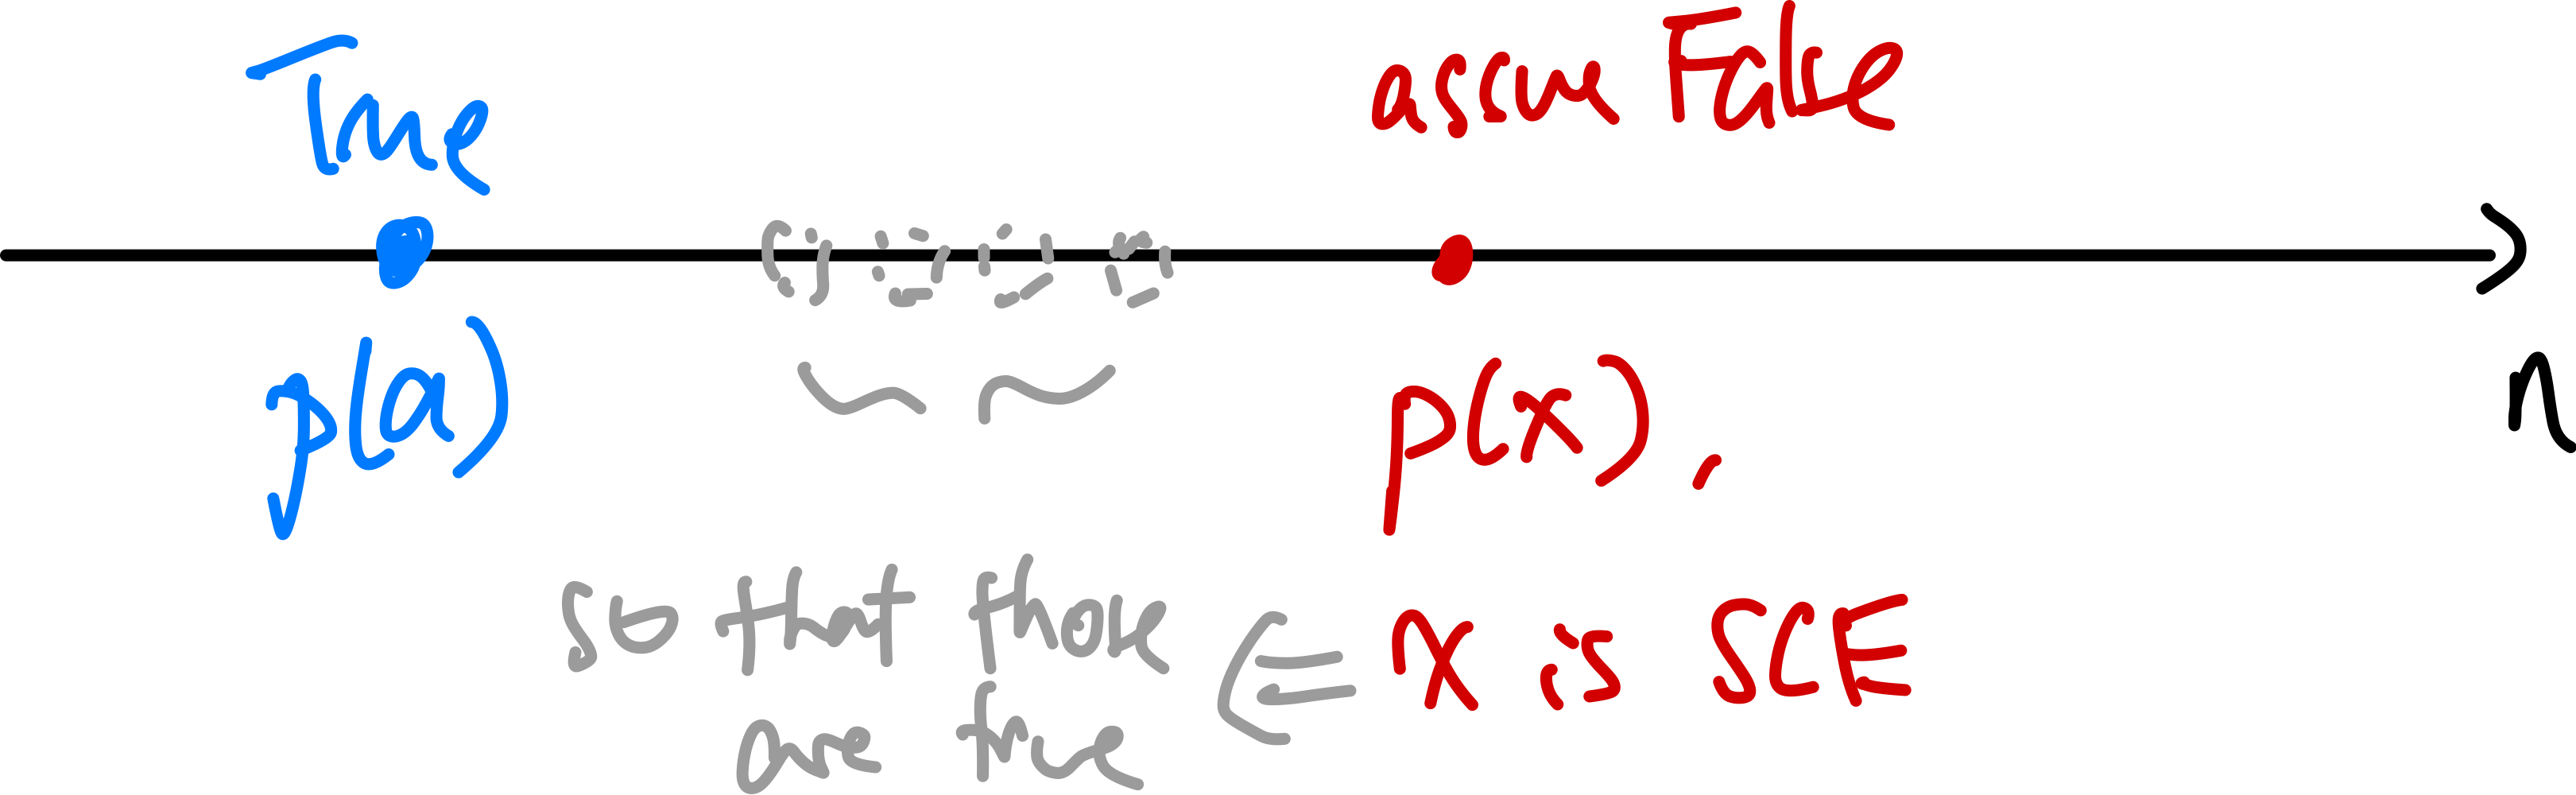 True
assue False
p(a)
p(x),
n
so that those
are true
⇐ x is SCE